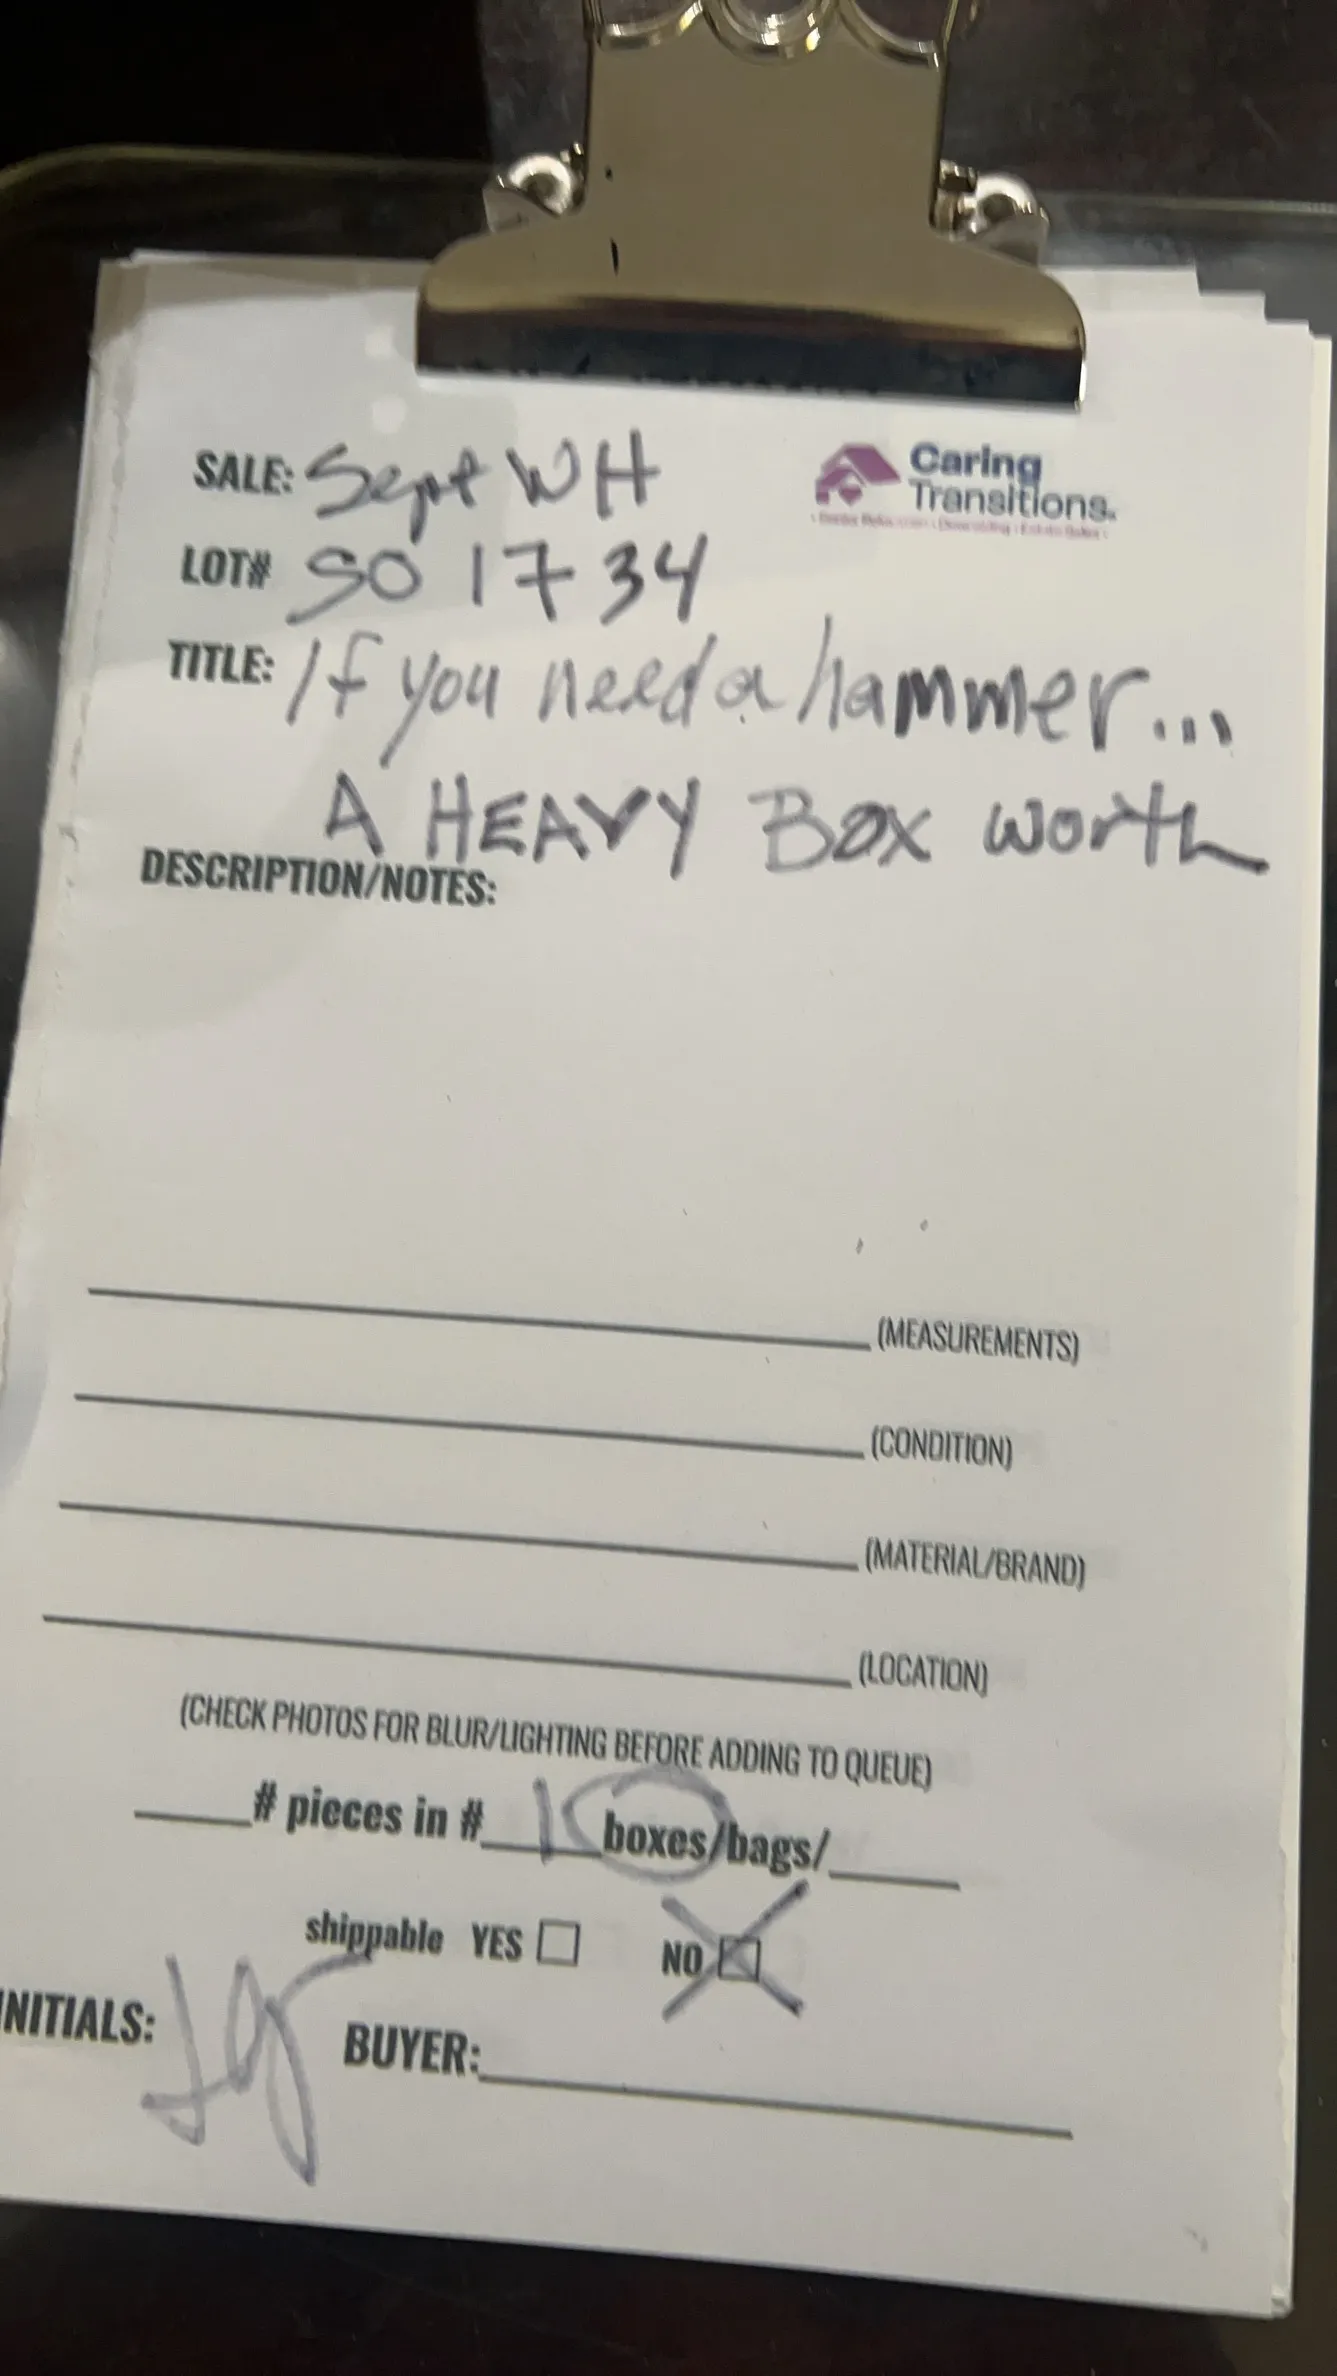 SALE: Sept WH
Caring
Transitions.
LOT# SO 1734
TITLE: If you need a hammer...
A HEAVY Box worth
DESCRIPTION/NOTES:
(MEASUREMENTS)
(CONDITION)
(MATERIAL/BRAND)
(LOCATION)
(CHECK PHOTOS FOR BLUR/LIGHTING BEFORE ADDING TO QUEUE)
____# pieces in #__1__boxes/bags/____
shippable YES ☐ NO ☒
INITIALS:
BUYER: